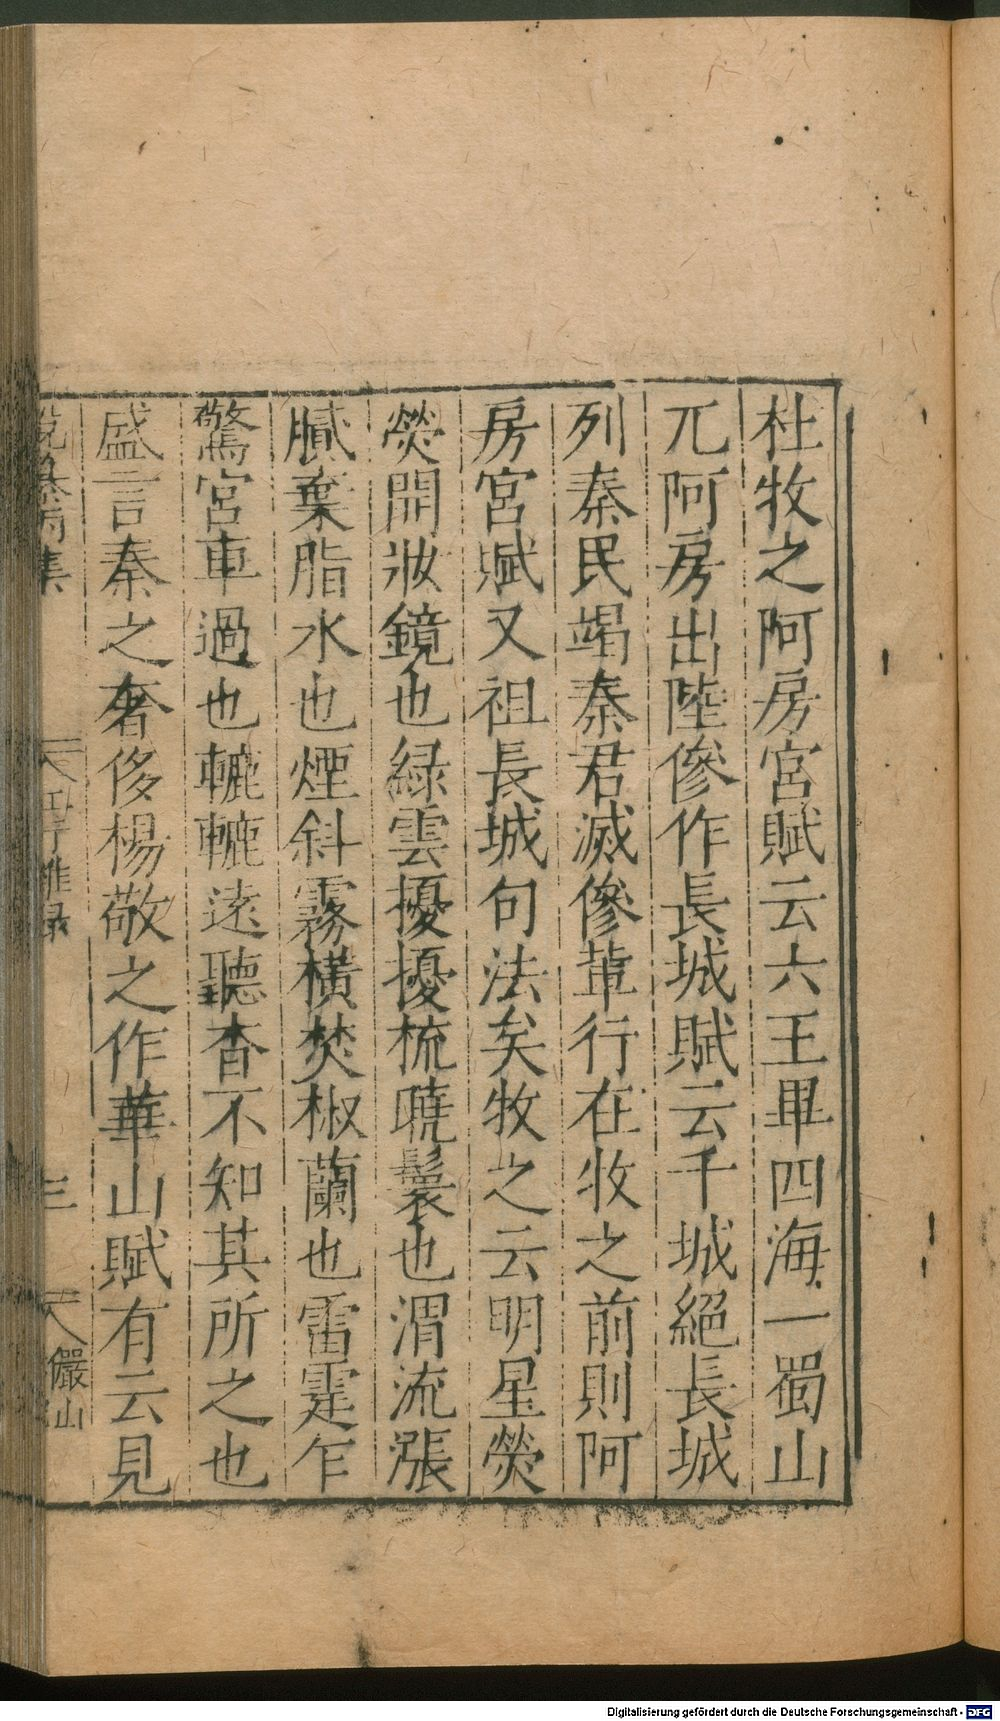 杜牧之阿房宮賦云六王畢四海一蜀山
兀阿房出陸傪作長城賦云千城絕長城
列秦民竭秦君滅傪輩行在牧之前則阿
房宮賦又祖長城句法矣牧之云明星熒
熒開妝鏡也綠雲擾擾梳曉鬟也渭流漲
膩棄脂水也煙斜霧橫焚椒蘭也雷霆乍
驚宮車過也轆轆遠聽杳不知其所之也
盛言秦之奢侈楊敬之作華山賦有云見
三
儼山
Digitalisierung gefördert durch die Deutsche Forschungsgemeinschaft - DFG